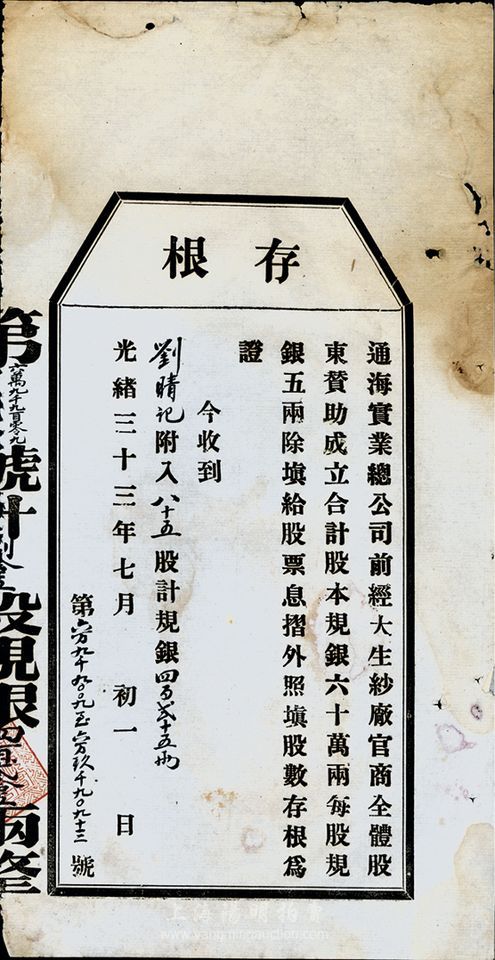 存根
通海實業總公司前經大生紗廠官商全體股
東贊助成立合計股本規銀六十萬兩每股規
銀五兩除填給股票息摺外照填股數存根為
證
今收到
劉晴記附入八十五股計規銀四百弍十五兩
光緒三十三年七月初一日
第六万九千九〇九至六万玖千九〇九十三號
第六萬九千九百零九號計股規銀兩整
上海陽明拍賣
www.yangmingauction.com